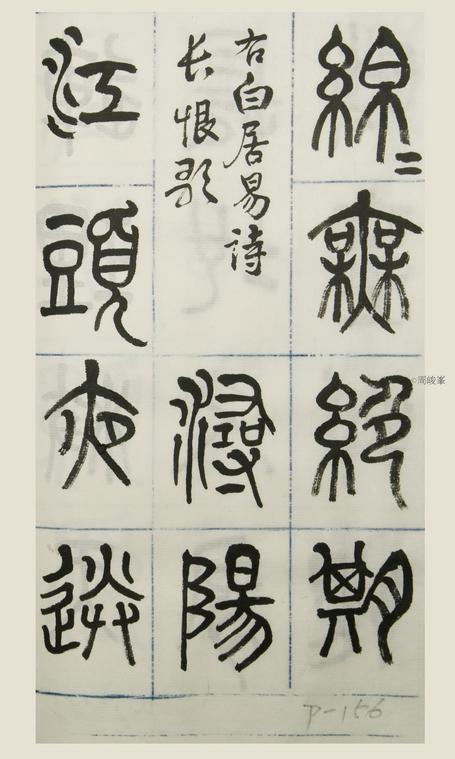 綿〻無絕期
右白居易詩
长恨歌
潯陽
江頭夜送
P-156
©周峻峯